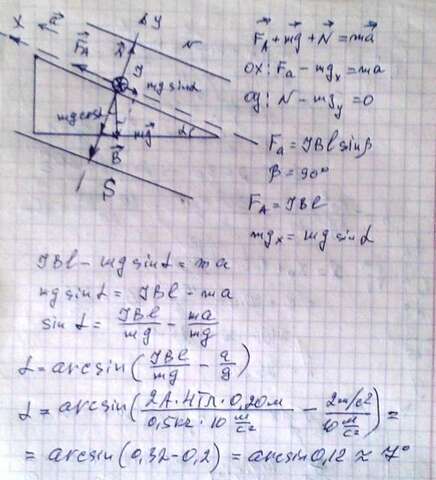 X
a⃗
F⃗A
N⃗
y
N
I
mg sinα
mg cosα
mg⃗
α
B⃗
S
F⃗A + mg⃗ + N⃗ = ma⃗
ox: Fa - mgx = ma
oy: N - mgy = 0
Fa = IBl sinβ
β = 90°
FA = IBl
mgx = mg sinα
IBl - mg sinα = ma
mg sinα = IBl - ma
sinα = IBl/mg - ma/mg
α = arcsin(IBl/mg - a/g)
α = arcsin(2А·4Тл·0,20м / 0,5кг·10 м/с² - 2м/с² / 10 м/с²) =
= arcsin(0,32-0,2) = arcsin 0,12 ≈ 7°